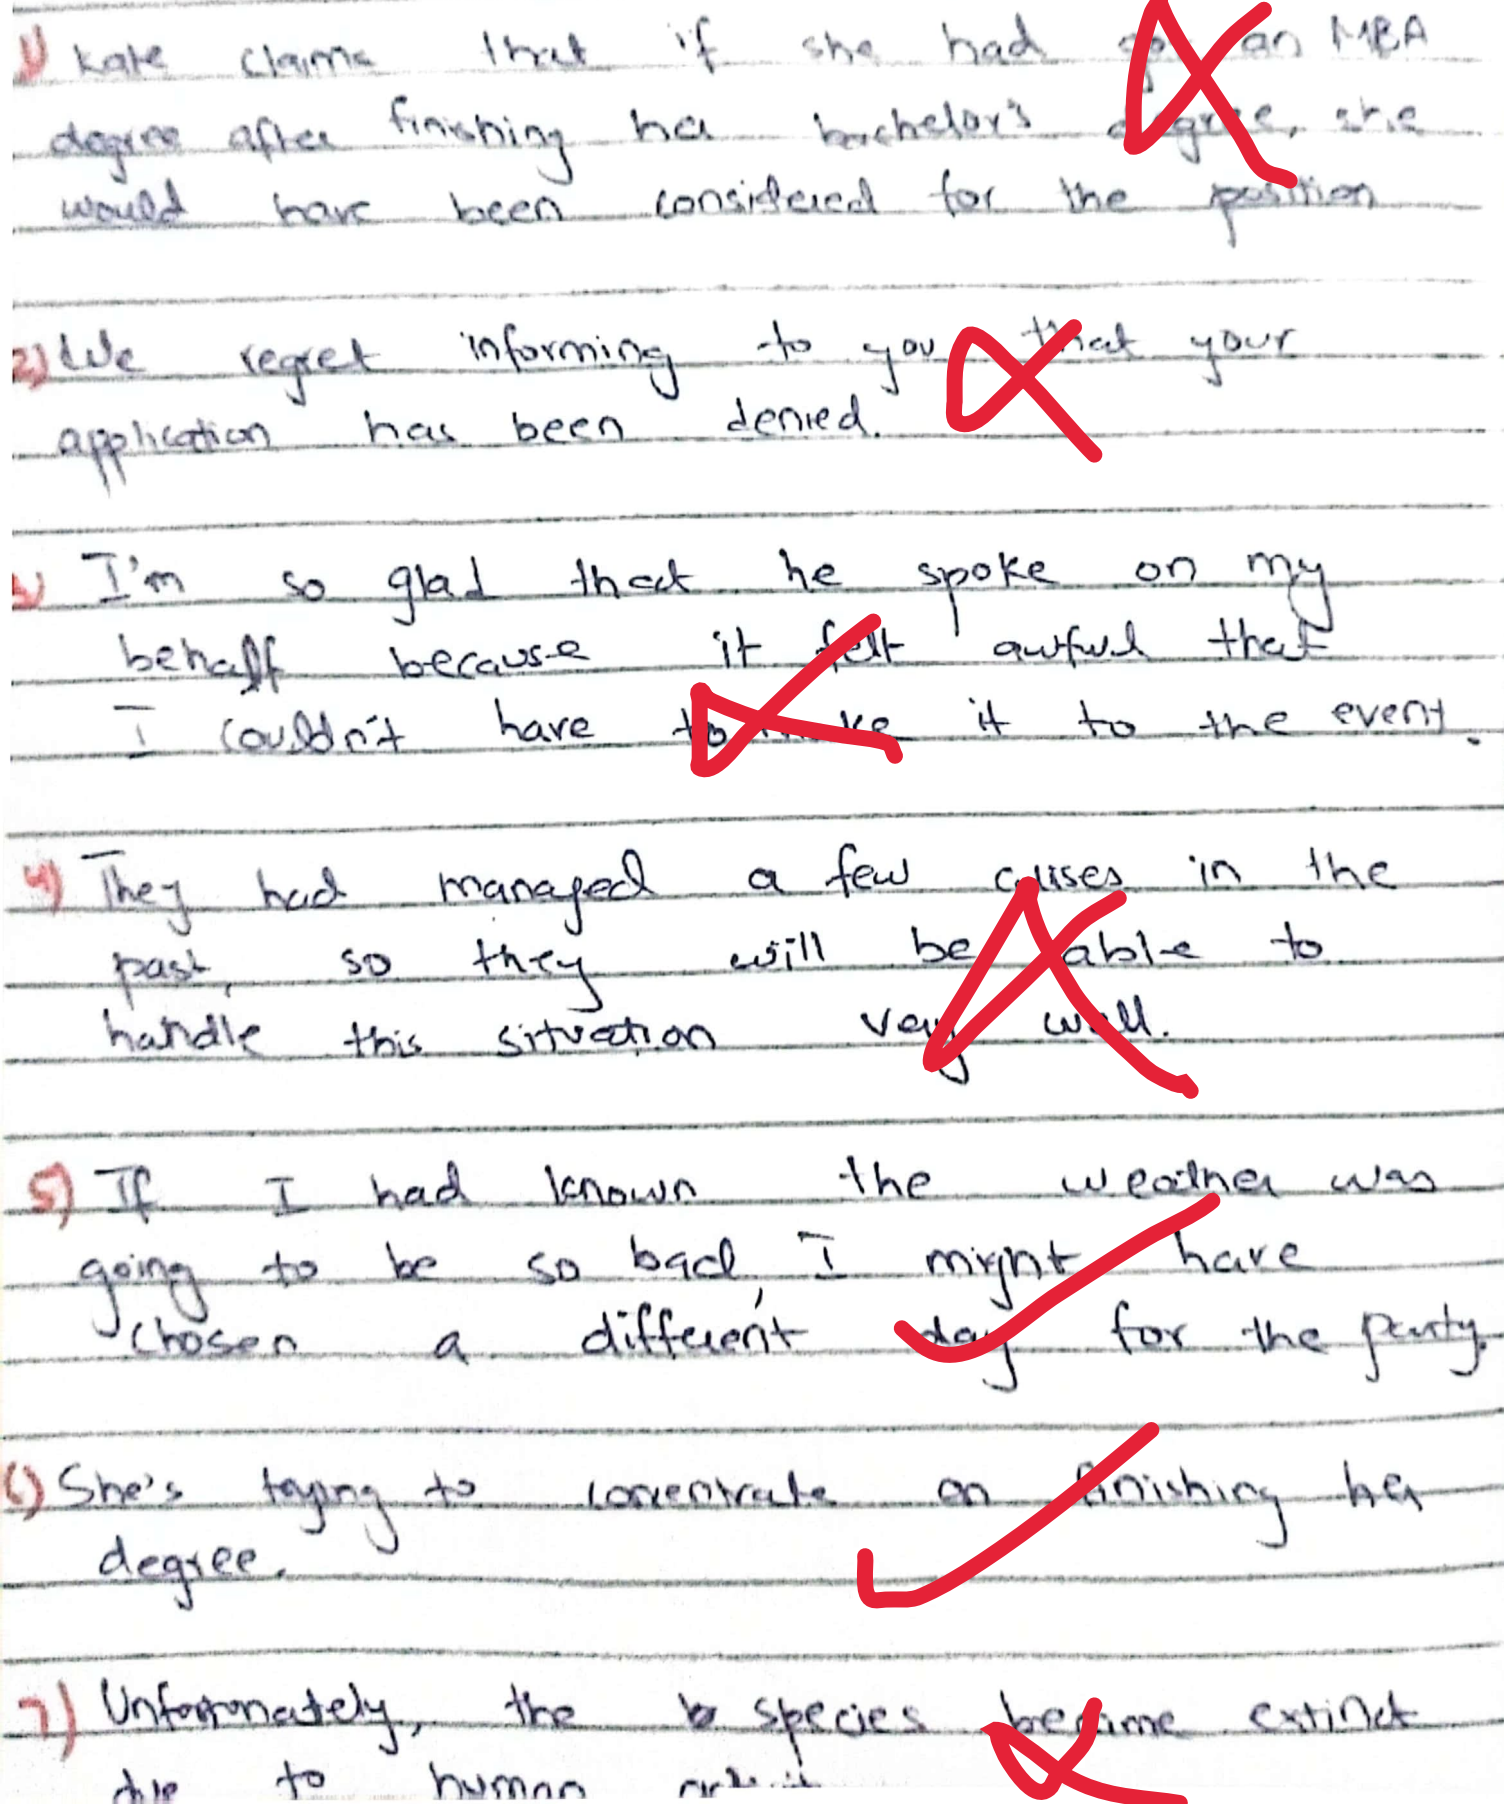 1) Kate claims that if she had an MBA
degree after finishing her bachelor's degree, she
would have been considered for the position
2) We regret informing to you that your
application has been denied.
3) I'm so glad that he spoke on my
behalf because it felt awful that
I couldn't have to make it to the event.
4) They had managed a few crises in the
past, so they will be able to
handle this situation very well.
5) If I had known the weather was
going to be so bad, I might have
chosen a different day for the party.
6) She's trying to concentrate on finishing her
degree.
7) Unfortunately, the species became extinct
due to human